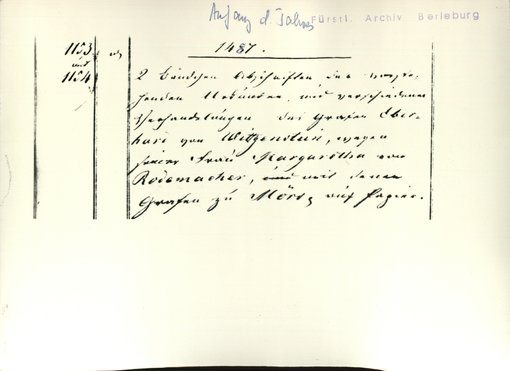 Anfang d Jahres
Fürstl. Archiv Berleburg
1153
und
1154
1487.
2 Bändchen Abschriften der vorste-
henden Urkunden und verschiedener
Verhandlungen des Grafen Eber-
hard von Witgenstein, wegen
seiner Frau Margaretha von
Rodemacher, und mit denen
Grafen zu Mörs, auf Papier.